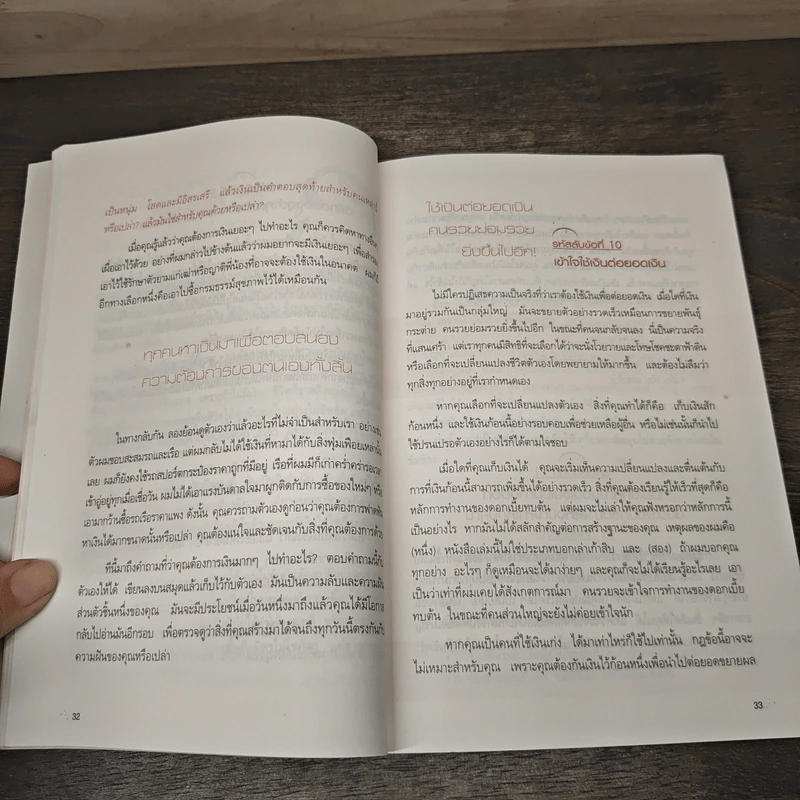 เป็นหนุ่ม โสดและมีอิสรเสรี แล้วเงินเป็นคำตอบสุดท้ายสำหรับคนเหล่านี้
หรือเปล่า? แล้วมันใช่สำหรับคุณด้วยหรือเปล่า?
เมื่อคุณรู้แล้วว่าคุณต้องการเงินเยอะๆ ไปทำอะไร คุณก็ควรคิดหาทางอื่น
เผื่อเอาไว้ด้วย อย่างที่ผมกล่าวไปข้างต้นแล้วว่าผมอยากจะมีเงินเยอะๆ เพื่อสำรอง
เอาไว้ใช้รักษาตัวยามแก่เฒ่าหรือญาติพี่น้องที่อาจจะต้องใช้เงินในอนาคต ผมก็มี
อีกทางเลือกหนึ่งคือเอาไปซื้อกรมธรรม์สุขภาพไว้ได้เหมือนกัน
ทุกคนหาเงินมาเพื่อตอบสนอง
ความต้องการของตนเองทั้งสิ้น
ในทางกลับกัน ลองย้อนดูตัวเองว่าแล้วอะไรที่ไม่จำเป็นสำหรับเรา อย่างเช่น
ตัวผมชอบสะสมรถและเรือ แต่ผมกลับไม่ได้ใช้เงินที่หามาได้กับสิ่งฟุ่มเฟือยเหล่านั้น
เลย ผมก็ยังคงใช้รถสปอร์ตกระป๋องราคาถูกที่มีอยู่ เรือที่ผมมีก็เก่าคร่ำคร่ารอเวลา
เข้าอู่อยู่ทุกเมื่อเชื่อวัน ผมไม่ได้เอาแรงบันดาลใจมาผูกติดกับการซื้อของใหม่ๆ หรือ
เอามากว้านซื้อรถเรือราคาแพง ดังนั้น คุณควรถามตัวเองดูก่อนว่าคุณต้องการฟาดฟัน
หาเงินได้มากขนาดนั้นหรือเปล่า คุณต้องแน่ใจและชัดเจนกับสิ่งที่คุณต้องการด้วย
ทีนี้มาถึงคำถามที่ว่าคุณต้องการเงินมากๆ ไปทำอะไร? ตอบคำถามนี้กับ
ตัวเองให้ได้ เขียนลงบนสมุดแล้วเก็บไว้กับตัวเอง มันเป็นความลับและความฝัน
ส่วนตัวชิ้นหนึ่งของคุณ มันจะมีประโยชน์เมื่อวันหนึ่งมาถึงแล้วคุณได้มีโอกาส
กลับไปอ่านมันอีกรอบ เพื่อตรวจดูว่าสิ่งที่คุณสร้างมาได้จนถึงทุกวันนี้ตรงกันกับ
ความฝันของคุณหรือเปล่า
32
ใช้เป็นต่อยอดเป็น
คนรวยย่อมรวย
ยิ่งขึ้นไปอีก!
รหัสลับข้อที่ 10
เข้าใจใช้เงินต่อยอดเงิน
ไม่มีใครปฏิเสธความเป็นจริงที่ว่าเราต้องใช้เงินเพื่อต่อยอดเงิน เมื่อใดที่เงิน
มาอยู่รวมกันเป็นกลุ่มใหญ่ มันจะขยายตัวอย่างรวดเร็วเหมือนการขยายพันธุ์
กระต่าย คนรวยย่อมรวยยิ่งขึ้นไปอีก ในขณะที่คนจนกลับจนลง นี่เป็นความจริง
ที่แสนเศร้า แต่เราทุกคนมีสิทธิที่จะเลือกได้ว่าจะนั่งโวยวายและโทษโชคชะตาฟ้าดิน
หรือเลือกที่จะเปลี่ยนแปลงชีวิตตัวเองโดยพยายามให้มากขึ้น และต้องไม่ลืมว่า
ทุกสิ่งทุกอย่างอยู่ที่เรากำหนดเอง
หากคุณเลือกที่จะเปลี่ยนแปลงตัวเอง สิ่งที่คุณทำได้ก็คือ เก็บเงินสัก
ก้อนหนึ่ง และใช้เงินก้อนนี้อย่างรอบคอบเพื่อช่วยเหลือผู้อื่น หรือไม่เช่นนั้นก็นำไป
ใช้ปรนเปรอตัวเองอย่างไรก็ได้ตามใจชอบ
เมื่อใดที่คุณเก็บเงินได้ คุณจะเริ่มเห็นความเปลี่ยนแปลงและตื่นเต้นกับ
การที่เงินก้อนนี้สามารถเพิ่มขึ้นได้อย่างรวดเร็ว สิ่งที่คุณต้องเรียนรู้ให้เร็วที่สุดก็คือ
หลักการทำงานของดอกเบี้ยทบต้น แต่ผมจะไม่เล่าให้คุณฟังหรอกว่าหลักการนี้
เป็นอย่างไร หากมันไม่ได้สลักสำคัญต่อการสร้างฐานะของคุณ เหตุผลของผมคือ
(หนึ่ง) หนังสือเล่มนี้ไม่ใช่ประเภทบอกเล่าเก้าสิบ และ (สอง) ถ้าผมบอกคุณ
ทุกอย่าง อะไรๆ ก็ดูเหมือนจะได้มาง่ายๆ และคุณก็จะไม่ได้เรียนรู้อะไรเลย เอา
เป็นว่าเท่าที่ผมเคยได้สังเกตการณ์มา คนรวยจะเข้าใจการทำงานของดอกเบี้ย
ทบต้น ในขณะที่คนส่วนใหญ่จะยังไม่ค่อยเข้าใจนัก
หากคุณเป็นคนที่ใช้เงินเก่ง ได้มาเท่าไหร่ก็ใช้ไปเท่านั้น กฎข้อนี้อาจจะ
ไม่เหมาะสำหรับคุณ เพราะคุณต้องกันเงินไว้ก้อนหนึ่งเพื่อนำไปต่อยอดขยายผล
33